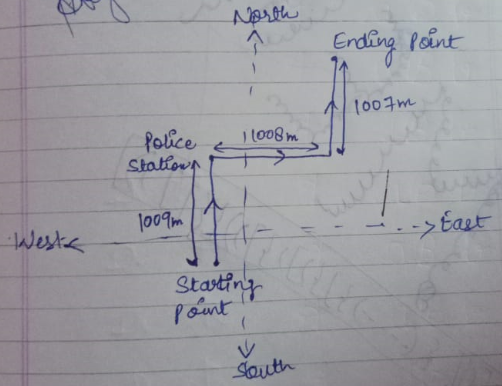 North
Ending Point
1007m
1008m
Police
Station
1009m
West
East
Starting
Point
South